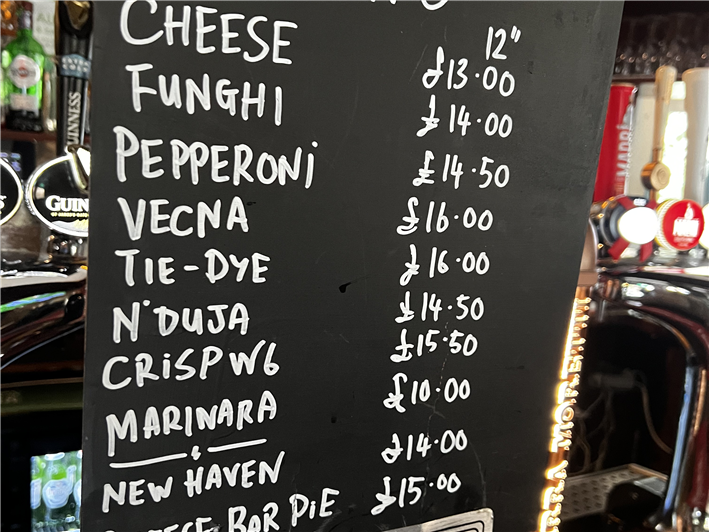 12"
CHEESE £13.00
FUNGHI £14.00
PEPPERONI £14.50
VECNA £16.00
TIE-DYE £16.00
N'DUJA £14.50
CRISPW6 £15.50
MARINARA £10.00
NEW HAVEN £14.00
BAR PIE £15.00
GUIN
INNESS
MADRÍ